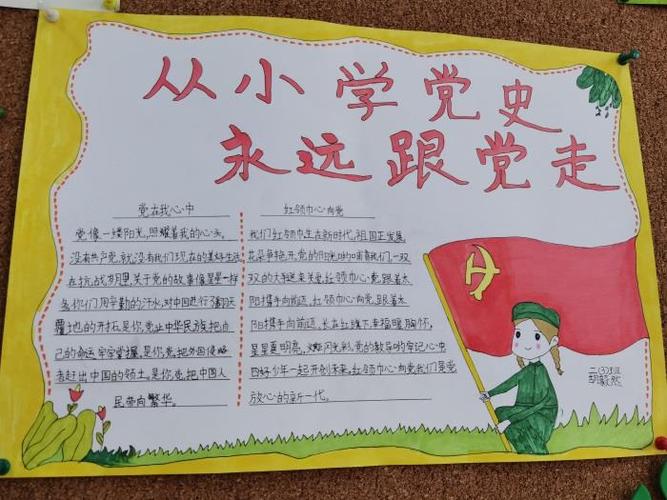 从小学党史
永远跟党走
党在我心中
党像一缕阳光,照耀着我的心头。
没有共产党,就没有我们现在的美好生活
在抗战期里,关于党的故事像星星一样
多,你们用辛勤的汗水,对中国进行了翻天
覆地的开拓是你,党让中华民族把自
己的命运牢牢掌握,是你,党把外国侵略
者赶出中国的领土。是你,党把中国人
民带向繁华。
红领巾心向党
我们红领巾生在新时代,祖国正发展
花朵争艳开,党的阳光
双的大
阳携手向前远,红领巾心向党,跟着太
阳携手向前远,长在红旗下,幸福暖胸怀,
星星夏明亮,火炬闪光彩,党的教导的牢记心中
四好少年一起开创未来,红领巾心向党我们是党
放心的新一代。
二(3)班
胡毅然